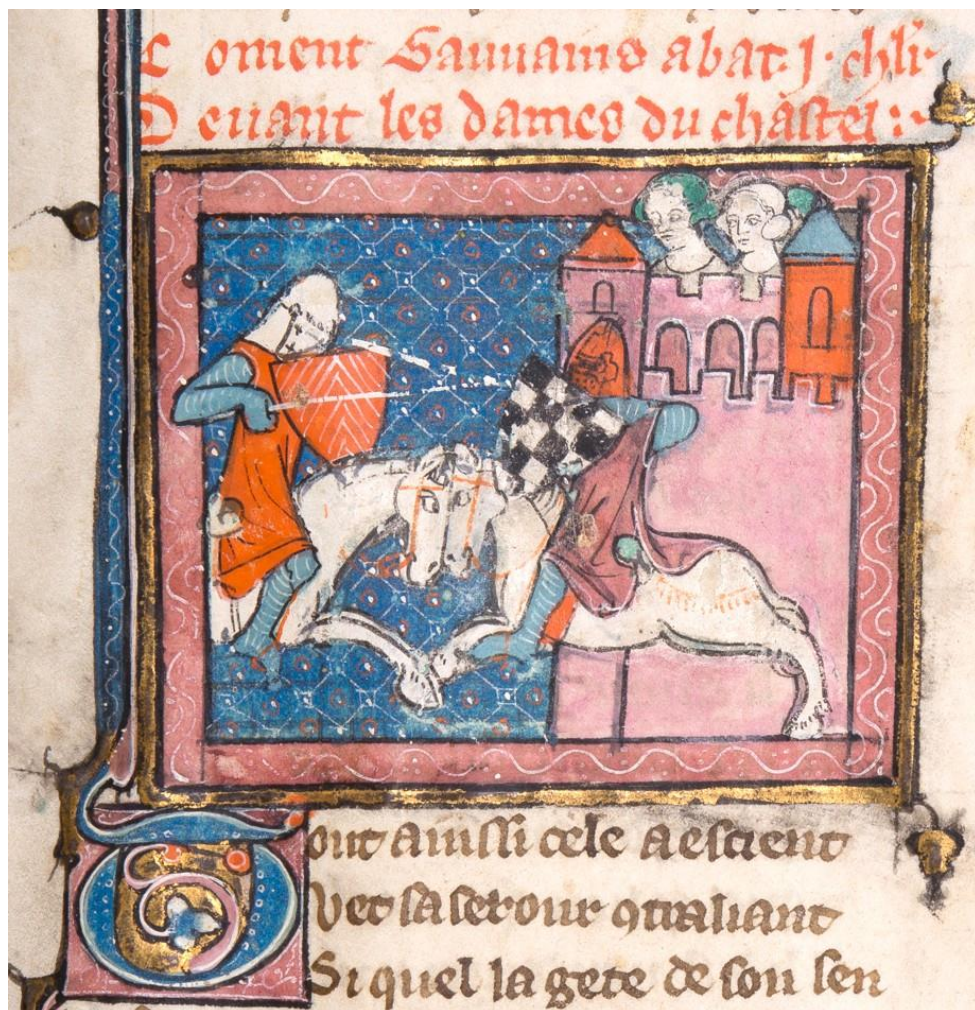 Coment Gauuains abat .j. chli̅r
Deuant les dames du chastel :
Tout ainssi cele a escient
Vet sa serour 9traliant
Si quel la gete de son sen